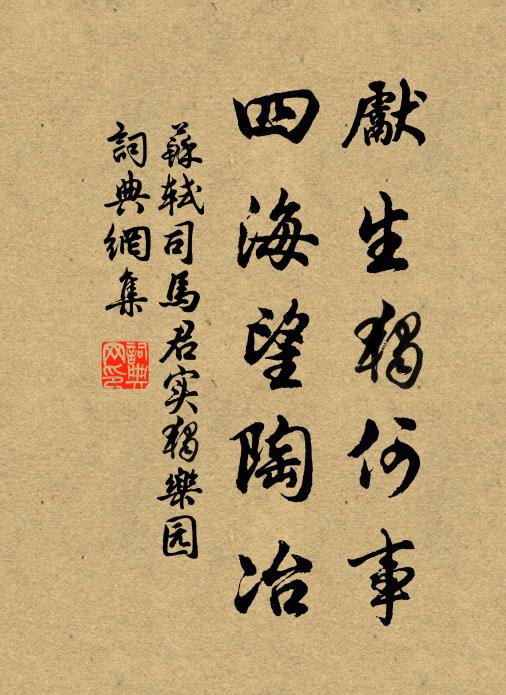 獻生獨何事
四海望陶冶
蘇軾司馬君实獨樂园
詞典網集
詞典
网印